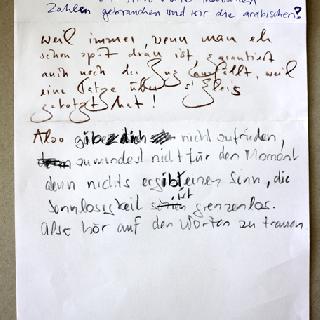 Zahlen gebrauchen und wir die arabischen?
weil immer, wenn man eh
schon spät dran ist, garantiert
auch noch der Zug ausfällt, weil
eine Katze übers Gleis
gekotzt hat!
Also gib dich nicht zufrieden,
zumindest nicht für den Moment
denn nichts ergibt einen Sinn, die
Sinnlosigkeit ist grenzenlos.
also hör auf den Worten zu trauen